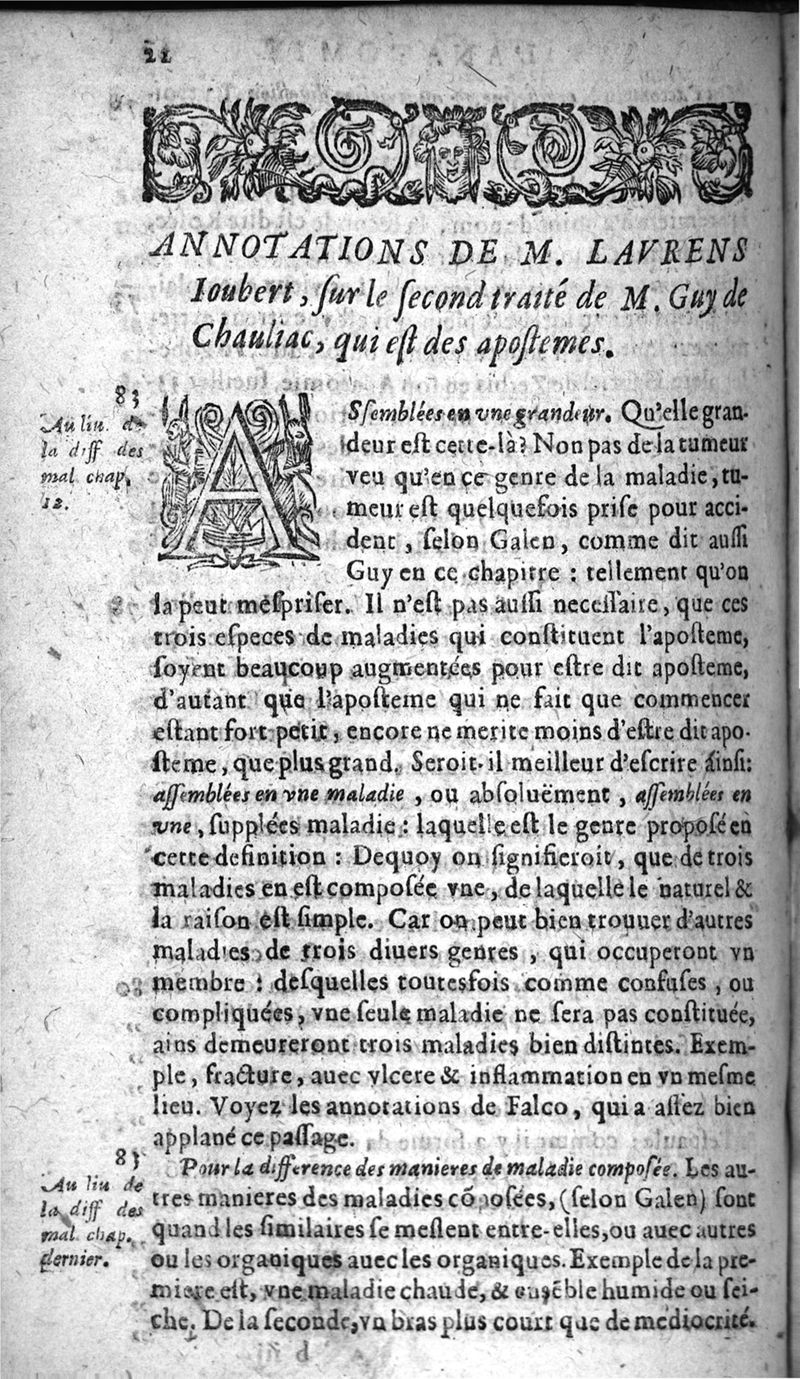 22
ANNOTATIONS DE M. LAVRENS
Ioubert, ſur le ſecond traité de M. Guy de
Chauliac, qui eſt des apoſtemes.
83
Au liu. de
la diff des
mal chap.
12.
ASſemblées en vne grandeur. Qu'elle gran-
deur eſt cette-là? Non pas de la tumeur
veu qu'en ce genre de la maladie, tu-
meur eſt quelquefois priſe pour acci-
dent, ſelon Galen, comme dit auſſi
Guy en ce chapitre : tellement qu'on
la peut meſpriſer. Il n'eſt pas auſſi neceſſaire, que ces
trois eſpeces de maladies qui conſtituent l'apoſteme,
ſoyent beaucoup augmentées pour eſtre dit apoſteme,
d'autant que l'apoſteme qui ne fait que commencer
eſtant fort petit, encore ne merite moins d'eſtre dit apo-
ſteme, que plus grand. Seroit-il meilleur d'eſcrire ainſi:
aſſemblées en vne maladie, ou abſoluëment, aſſemblées en
vne, ſupplées maladie : laquelle eſt le genre propoſé en
cette definition : Dequoy on ſignifieroit, que de trois
maladies en eſt compoſée vne, de laquelle le naturel &
la raiſon eſt ſimple. Car on peut bien trouuer d'autres
maladies de trois diuers genres, qui occuperont vn
membre : deſquelles toutesfois comme confuſes, ou
compliquées, vne ſeule maladie ne ſera pas conſtituée,
ains demeureront trois maladies bien diſtintes. Exem-
ple, fracture, auec vlcere & inflammation en vn meſme
lieu. Voyez les annotations de Falco, qui a aſſez bien
applané ce paſſage.
83
Au liu de
la diff des
mal chap.
dernier.
Pour la difference des manieres de maladie compoſée. Les au-
tres manieres des maladies cõpoſées, (ſelon Galen) ſont
quand les ſimilaires ſe meſlent entre-elles, ou auec autres
ou les organiques auec les organiques. Exemple de la pre-
miere eſt, vne maladie chaude, & enſẽble humide ou ſei-
che. De la ſeconde, vn bras plus court que de mediocrité.